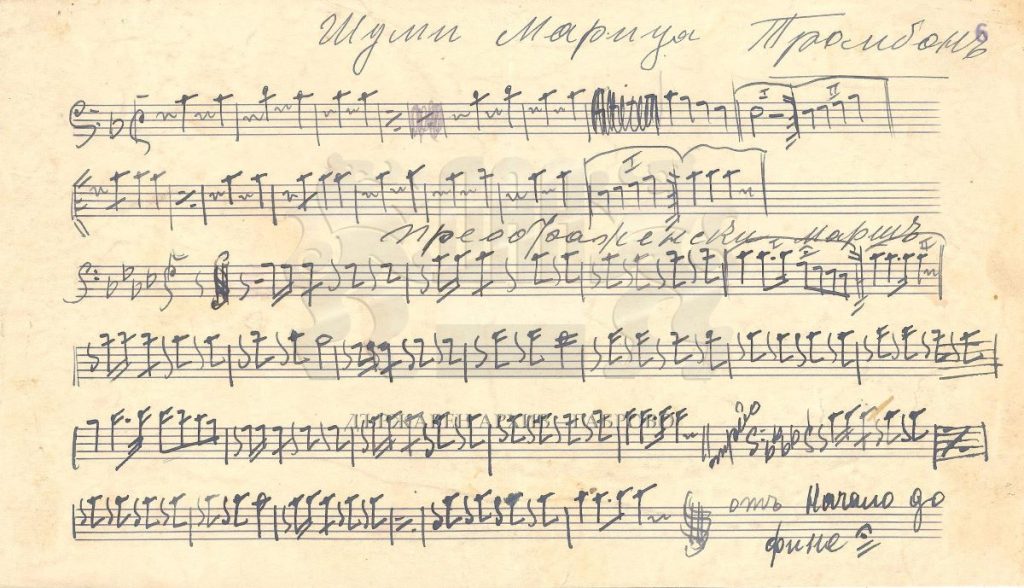 Шуми Марица Тромбонъ 6
I II
I
Преображенски маршъ
I II
ДЪРЖАВЕН АРХИВ ГАБРОВО
трио
отъ Начало до
фине